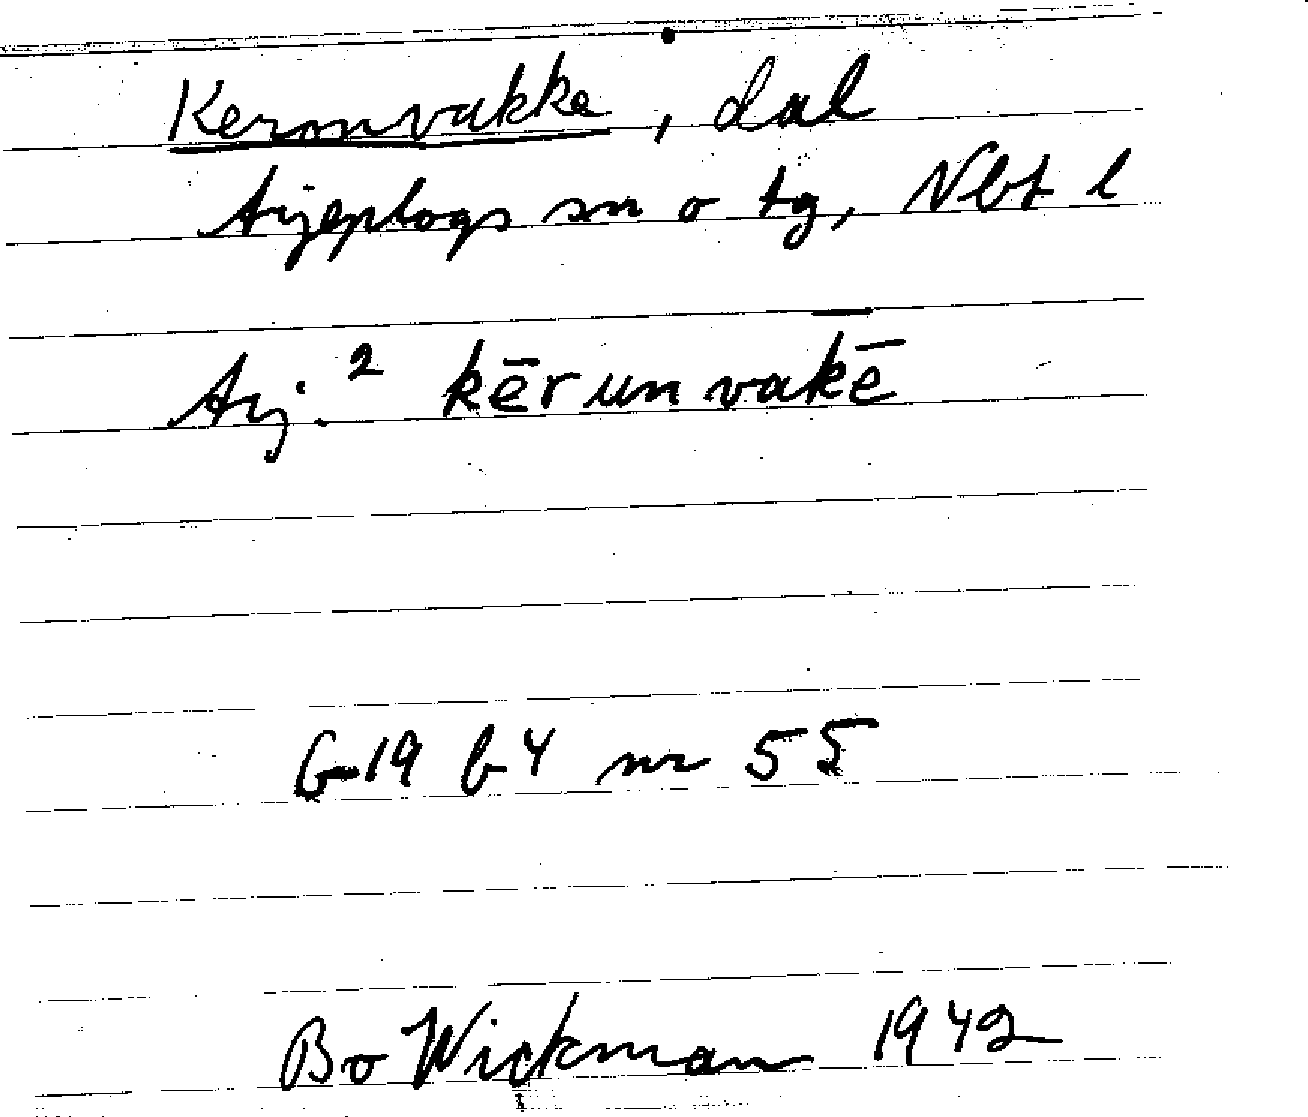 Keronvakke, dal
Arjeplogs sn o tg, Nbt l
Arj.² kērunvakē
G-19 b 4 nr 55
Bo Wickman 1942